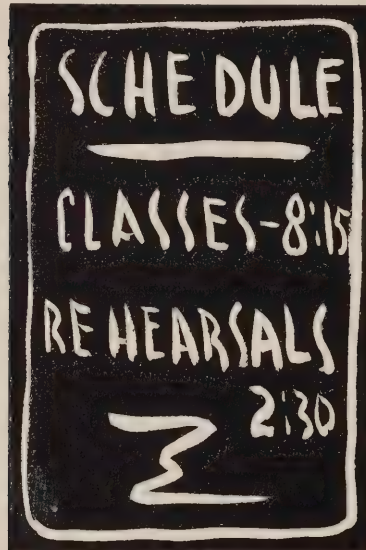 SCHEDULE
CLASSES-8:15
REHEARSALS
2:30